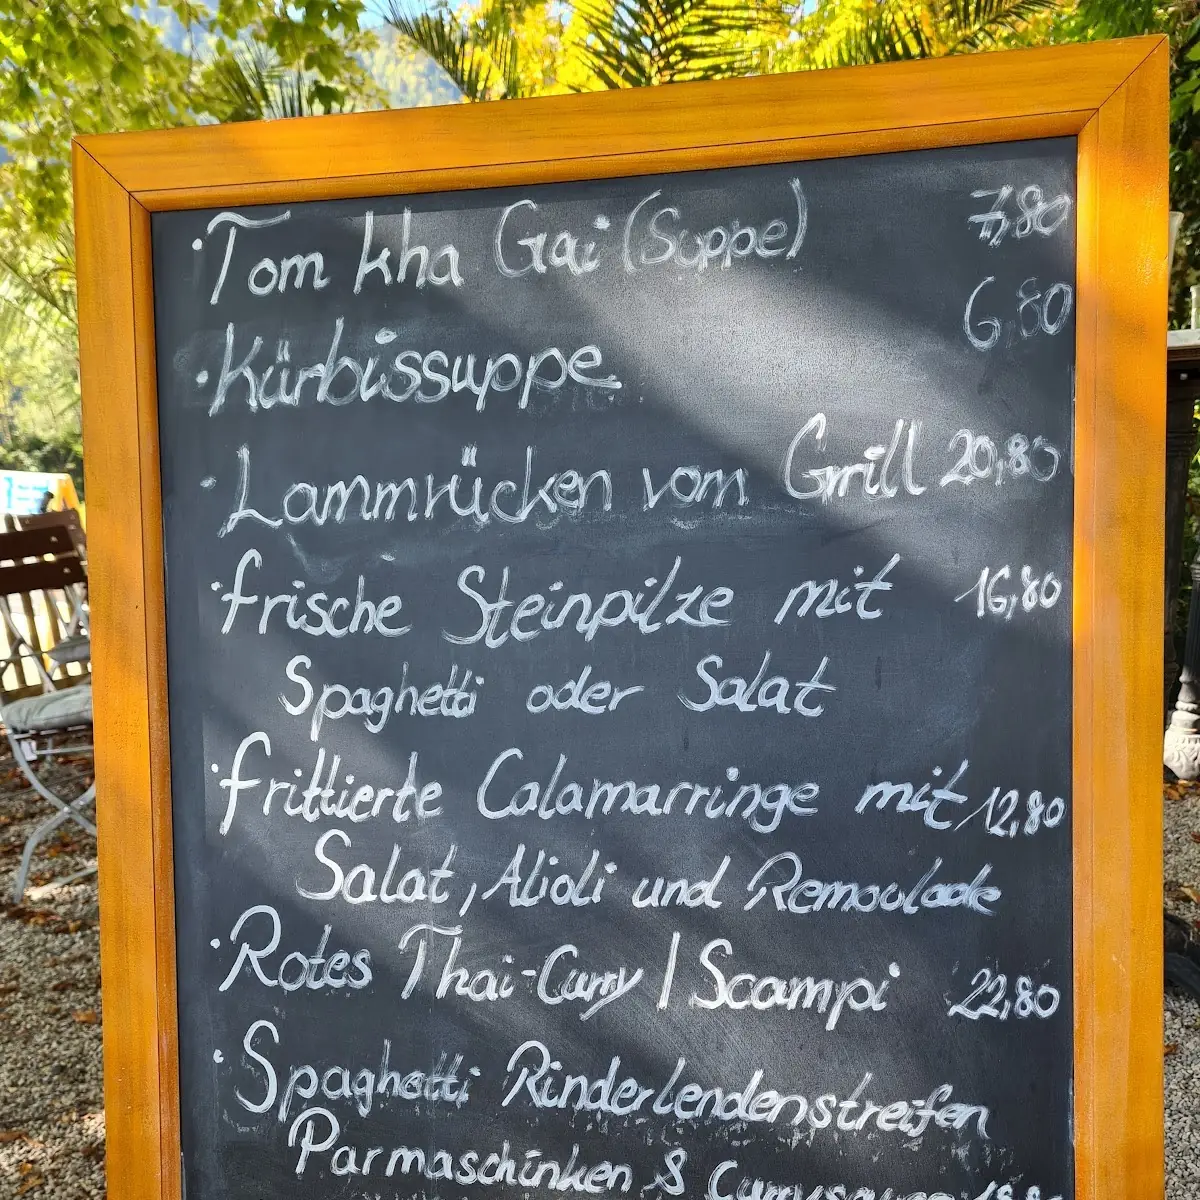 · Tom kha Gai (Suppe) 7,80
· Kürbissuppe 6,80
· Lammrücken vom Grill 20,80
· frische Steinpilze mit 16,80
Spaghetti oder Salat
· frittierte Calamarringe mit 12,80
Salat, Alioli und Remoulade
· Rotes Thai-Curry | Scampi 22,80
· Spaghetti Rinderlendenstreifen
Parmaschinken & Currysauce